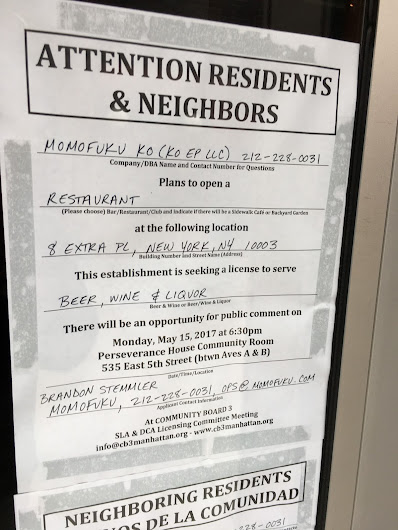 ATTENTION RESIDENTS
& NEIGHBORS
MOMOFUKU KO (KO EP LLC) 212-228-0031
Company/DBA Name and Contact Number for Questions
Plans to open a
RESTAURANT
(Please choose) Bar/Restaurant/Club and indicate if there will be a Sidewalk Café or Backyard Garden
at the following location
8 EXTRA PL, NEW YORK, NY 10003
Building Number and Street Name (Address)
This establishment is seeking a license to serve
BEER, WINE & LIQUOR
Beer & Wine or Beer/Wine & Liquor
There will be an opportunity for public comment on
Monday, May 15, 2017 at 6:30pm
Perseverance House Community Room
535 East 5th Street (btwn Aves A & B)
Date/Time/Location
BRANDON STEMMLER
MOMOFUKU, 212-228-0031, OPS@MOMOFUKU.COM
Applicant Contact Information
At COMMUNITY BOARD 3
SLA & DCA Licensing Committee Meeting
info@cb3manhattan.org - www.cb3manhattan.org
NEIGHBORING RESIDENTS
DE LA COMUNIDAD
-0031